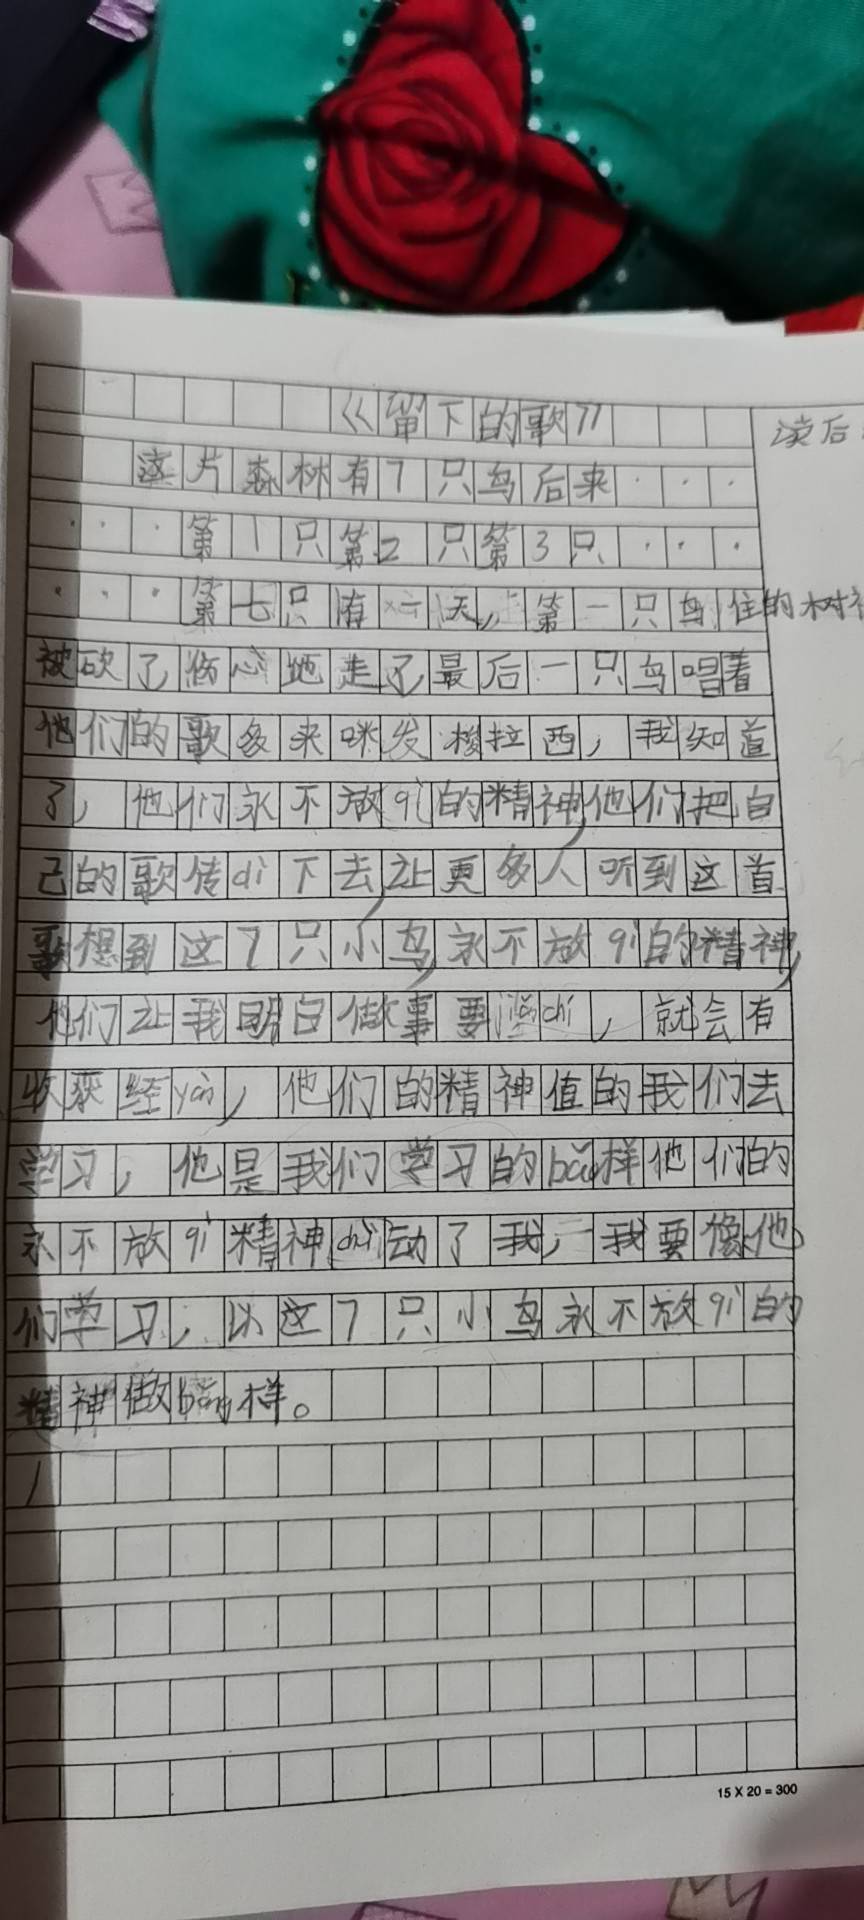 《留下的歌》 读后
这片森林有7只鸟后来···
···第1只第2只第3只···
···第七只有一天,第一只鸟住的树被
被砍了伤心地走了最后一只鸟唱着
他们的歌多来咪发梭拉西,我知道
了,他们永不放qì的精神,他们把自
己的歌传dì下去,让更多人听到这首
歌想到这7只小鸟,永不放qì的精神,
他们让我明白做事要坚chí,就会有
收获经yàn,他们的精神值的我们去
学习,他是我们学习的bǎng样他们的
永不放qì精神chù动了我,我要像他
们学习,以这7只小鸟永不放qì的
精神做bǎng样。
15 X 20 = 300